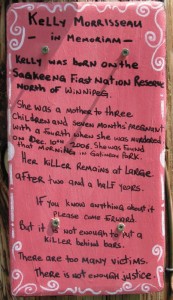 KELLY MORRISSEAU
- IN MEMORIAM -
KELLY WAS BORN ON THE
SAGKEENG FIRST NATION RESERVE
NORTH OF WINNIPEG.
SHE WAS A MOTHER TO THREE
CHILDREN AND SEVEN MONTHS PREGNANT
WITH A FOURTH WHEN SHE WAS MURDERED
ON DEC. 10TH 2006. SHE WAS FOUND
THAT MORNING IN GATINEAU PARK.
HER KILLER REMAINS AT LARGE
AFTER TWO AND A HALF YEARS.
IF YOU KNOW ANYTHING ABOUT IT
PLEASE COME FORWARD.
BUT IT IS NOT ENOUGH TO PUT A
KILLER BEHIND BARS.
THERE ARE TOO MANY VICTIMS.
THERE IS NOT ENOUGH JUSTICE